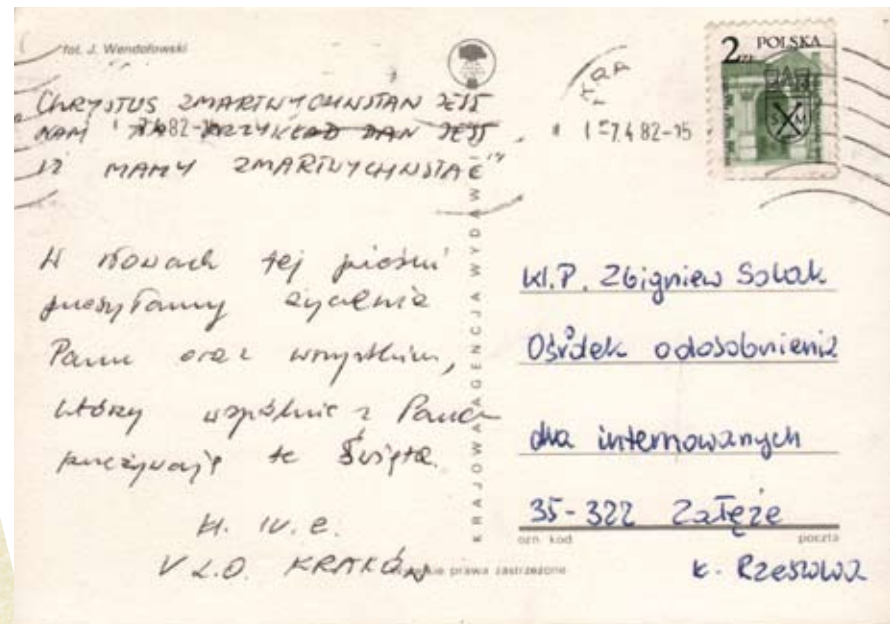 fot. J. Wendołowski
CHRYSTUS ZMARTWYCHWSTAN JEST
NAM NA PRZYKŁAD DAN JEST
IŻ MAMY ZMARTWYCHWSTAĆ"
W słowach tej pieśni
przesyłamy życzenia
Panu oraz wszystkim,
którzy wspólnie z Panem
przeżywają te Święta.
kl. IV. e.
V L.O. KRAKÓW
KRAJOWA AGENCJA WYDAWNI
prawa zastrzeżone
7.4 82-15
2 ZŁ POLSKA
S M
Kl. P. Zbigniew Solak
Ośrodek odosobnienia
dla internowanych
35-322 Załęże
ozn. kod poczta
k. Rzeszowa